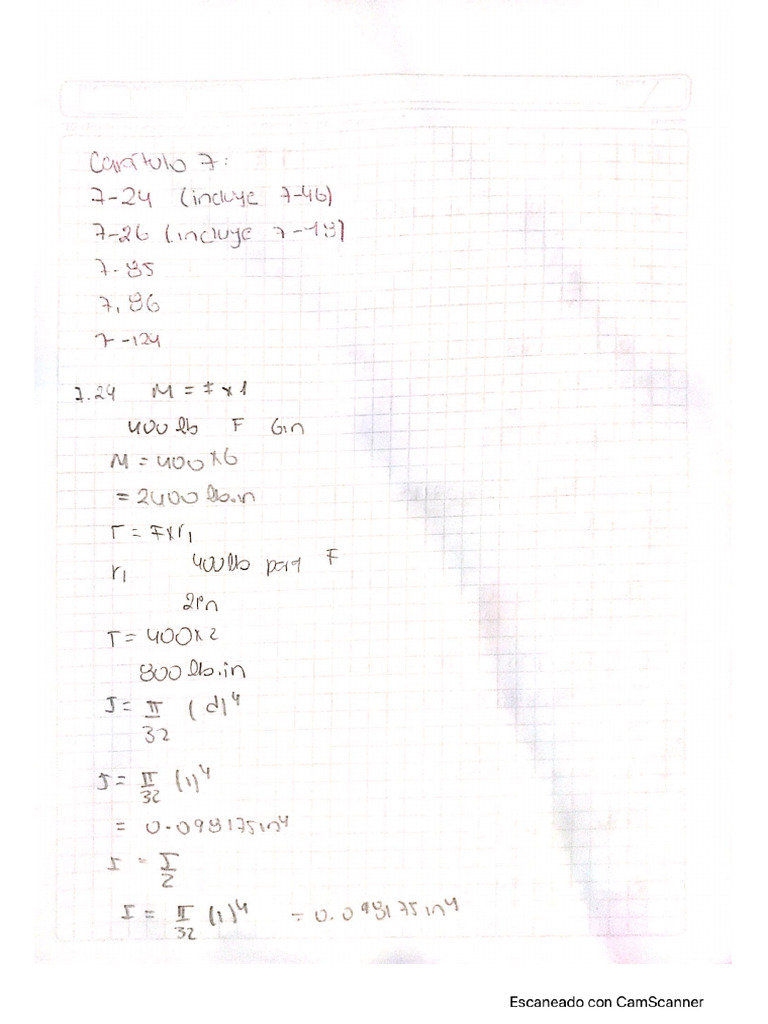 Capítulo 7:
7-24 (incluye 7-46)
7-26 (incluye 7-48)
7-95
7.96
7-124
7.24 M = F x 1
400 lb F 6in
M = 400 x 6
= 2400 lb.in
T = F x r1
r1 400 lb para F
2in
T = 400 x 2
800 lb.in
J = π/32 (d)^4
J = π/32 (1)^4
= 0.098175 in^4
I = I/2
I = π/32 (1)^4 = 0.098175 in^4
Escaneado con CamScanner